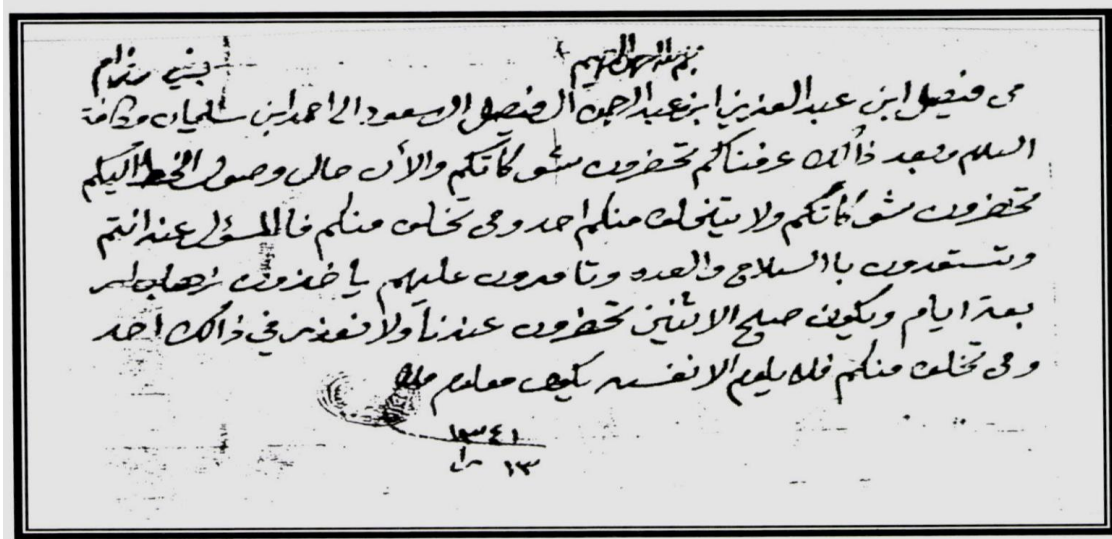 بسم الله الرحمن الرحيم
من فيصل ابن عبد العزيز ابن عبد الرحمن ال فيصل ال سعود الى احمد ابن سليمان وكافة بني رزام
السلام وبعد ذالك عرفناكم تحضرون شوكاتكم والأن حال وصول الخط اليكم
تحضرون شوكاتكم ولا يتخلف منكم احد ومن تخلف منكم فالمسؤل عنه انتم
وتستعدون باالسلاح والعده وتامرون عليهم ياخذون زهاب
بعة ايام ويكون صبح الاثنين تحضرون عندنا ولا نعذر في ذالك احد
ومن تخلف منكم فلا يلوم الا نفسه يكون معلوم
١٣٤١
١٣